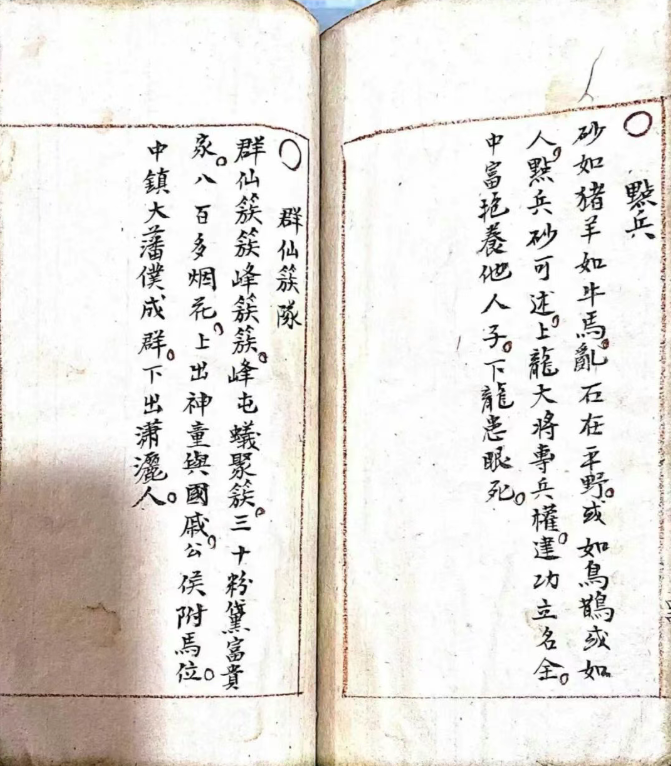 點兵
砂如猪羊如牛馬。亂石在平野。或如鳥鵲或如
人。點兵砂可述。上龍大將專兵權。建功立名全。
中富抱養他人子。下龍患眼死。
群仙簇隊
群仙簇簇峰簇簇。峰屯蟻聚簇。三十粉黛富貴
家。八百多烟花。上出神童與國戚。公侯附馬位。
中鎮大藩僕成群。下出瀟灑人。